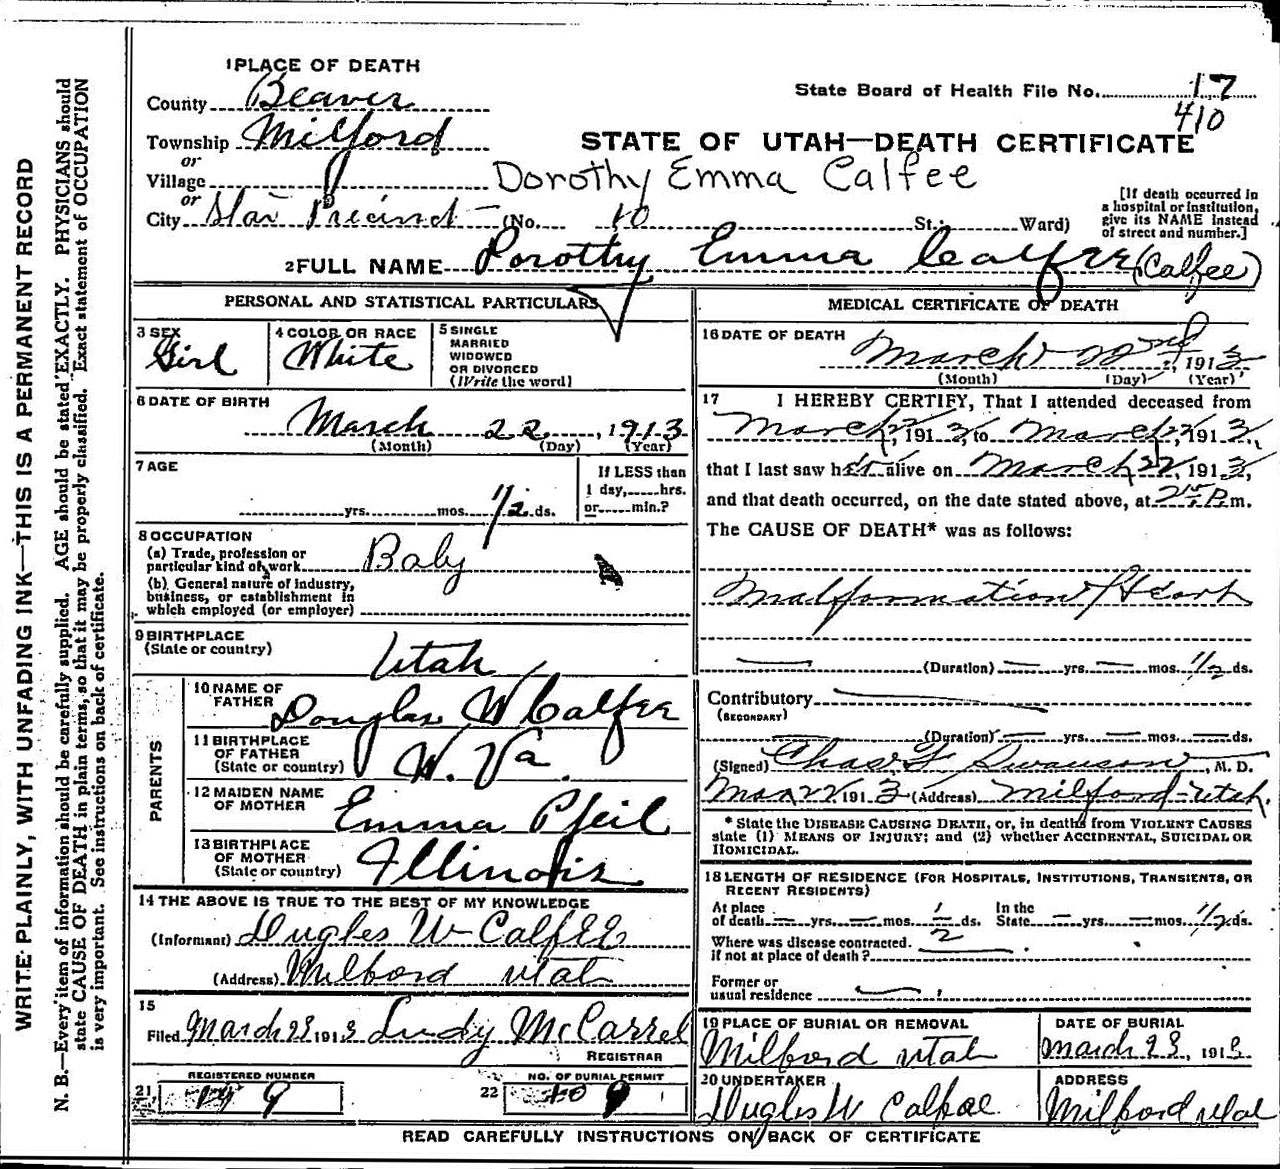 WRITE PLAINLY, WITH UNFADING INK—THIS IS A PERMANENT RECORD
N. B.—Every item of information should be carefully supplied. AGE should be stated EXACTLY. PHYSICIANS should
state CAUSE OF DEATH in plain terms, so that it may be properly classified. Exact statement of OCCUPATION
is very important. See instructions on back of certificate.
1 PLACE OF DEATH
County Beaver
Township Milford
or
Village
or
City Star Precinct (No. 10 St.; Ward)
State Board of Health File No. 17
410
STATE OF UTAH—DEATH CERTIFICATE
Dorothy Emma Calfee
[If death occurred in
a hospital or institution,
give its NAME instead
of street and number.]
2 FULL NAME Dorothy Emma Calfee (Calfee)
PERSONAL AND STATISTICAL PARTICULARS
3 SEX
Girl
4 COLOR OR RACE
White
5 SINGLE
MARRIED
WIDOWED
OR DIVORCED
(Write the word)
6 DATE OF BIRTH
March 22, 1913
(Month) (Day) (Year)
7 AGE
yrs. mos. 1/2 ds.
If LESS than
1 day, hrs.
or min.?
8 OCCUPATION
(a) Trade, profession or
particular kind of work Baby
(b) General nature of industry,
business, or establishment in
which employed (or employer)
9 BIRTHPLACE
(State or country)
Utah
PARENTS
10 NAME OF
FATHER
Douglas W Calfee
11 BIRTHPLACE
OF FATHER
(State or country) W. Va.
12 MAIDEN NAME
OF MOTHER
Emma Pfeil
13 BIRTHPLACE
OF MOTHER
(State or country) Illinois
14 THE ABOVE IS TRUE TO THE BEST OF MY KNOWLEDGE
(Informant) Dugles W Calfee
(Address) Milford Utah
15
Filed March 23 1913 Lindy McCarrel
REGISTRAR
REGISTERED NUMBER
21 9
NO. OF BURIAL PERMIT
22 9
MEDICAL CERTIFICATE OF DEATH
16 DATE OF DEATH
March 22nd, 1913
(Month) (Day) (Year)
17 I HEREBY CERTIFY, That I attended deceased from
March 22, 1913, to March 22, 1913,
that I last saw her alive on March 22, 1913,
and that death occurred, on the date stated above, at P.m.
The CAUSE OF DEATH* was as follows:
Malformation of Heart
(Duration) yrs. mos. 1/2 ds.
Contributory
(SECONDARY)
(Duration) yrs. mos. ds.
(Signed) Chas F Swanson, M. D.
Mar 22 1913 (Address) Milford-Utah.
* State the DISEASE CAUSING DEATH, or, in deaths from VIOLENT CAUSES
state (1) MEANS OF INJURY; and (2) whether ACCIDENTAL, SUICIDAL OR
HOMICIDAL.
18 LENGTH OF RESIDENCE (FOR HOSPITALS, INSTITUTIONS, TRANSIENTS, OR
RECENT RESIDENTS)
At place In the
of death yrs. mos. 1/2 ds. State yrs. mos. 1/2 ds.
Where was disease contracted.
if not at place of death?
Former or
usual residence
19 PLACE OF BURIAL OR REMOVAL
Milford Utah
DATE OF BURIAL
March 23, 1913
20 UNDERTAKER
Dugles W Calfae
ADDRESS
Milford Utah
READ CAREFULLY INSTRUCTIONS ON BACK OF CERTIFICATE